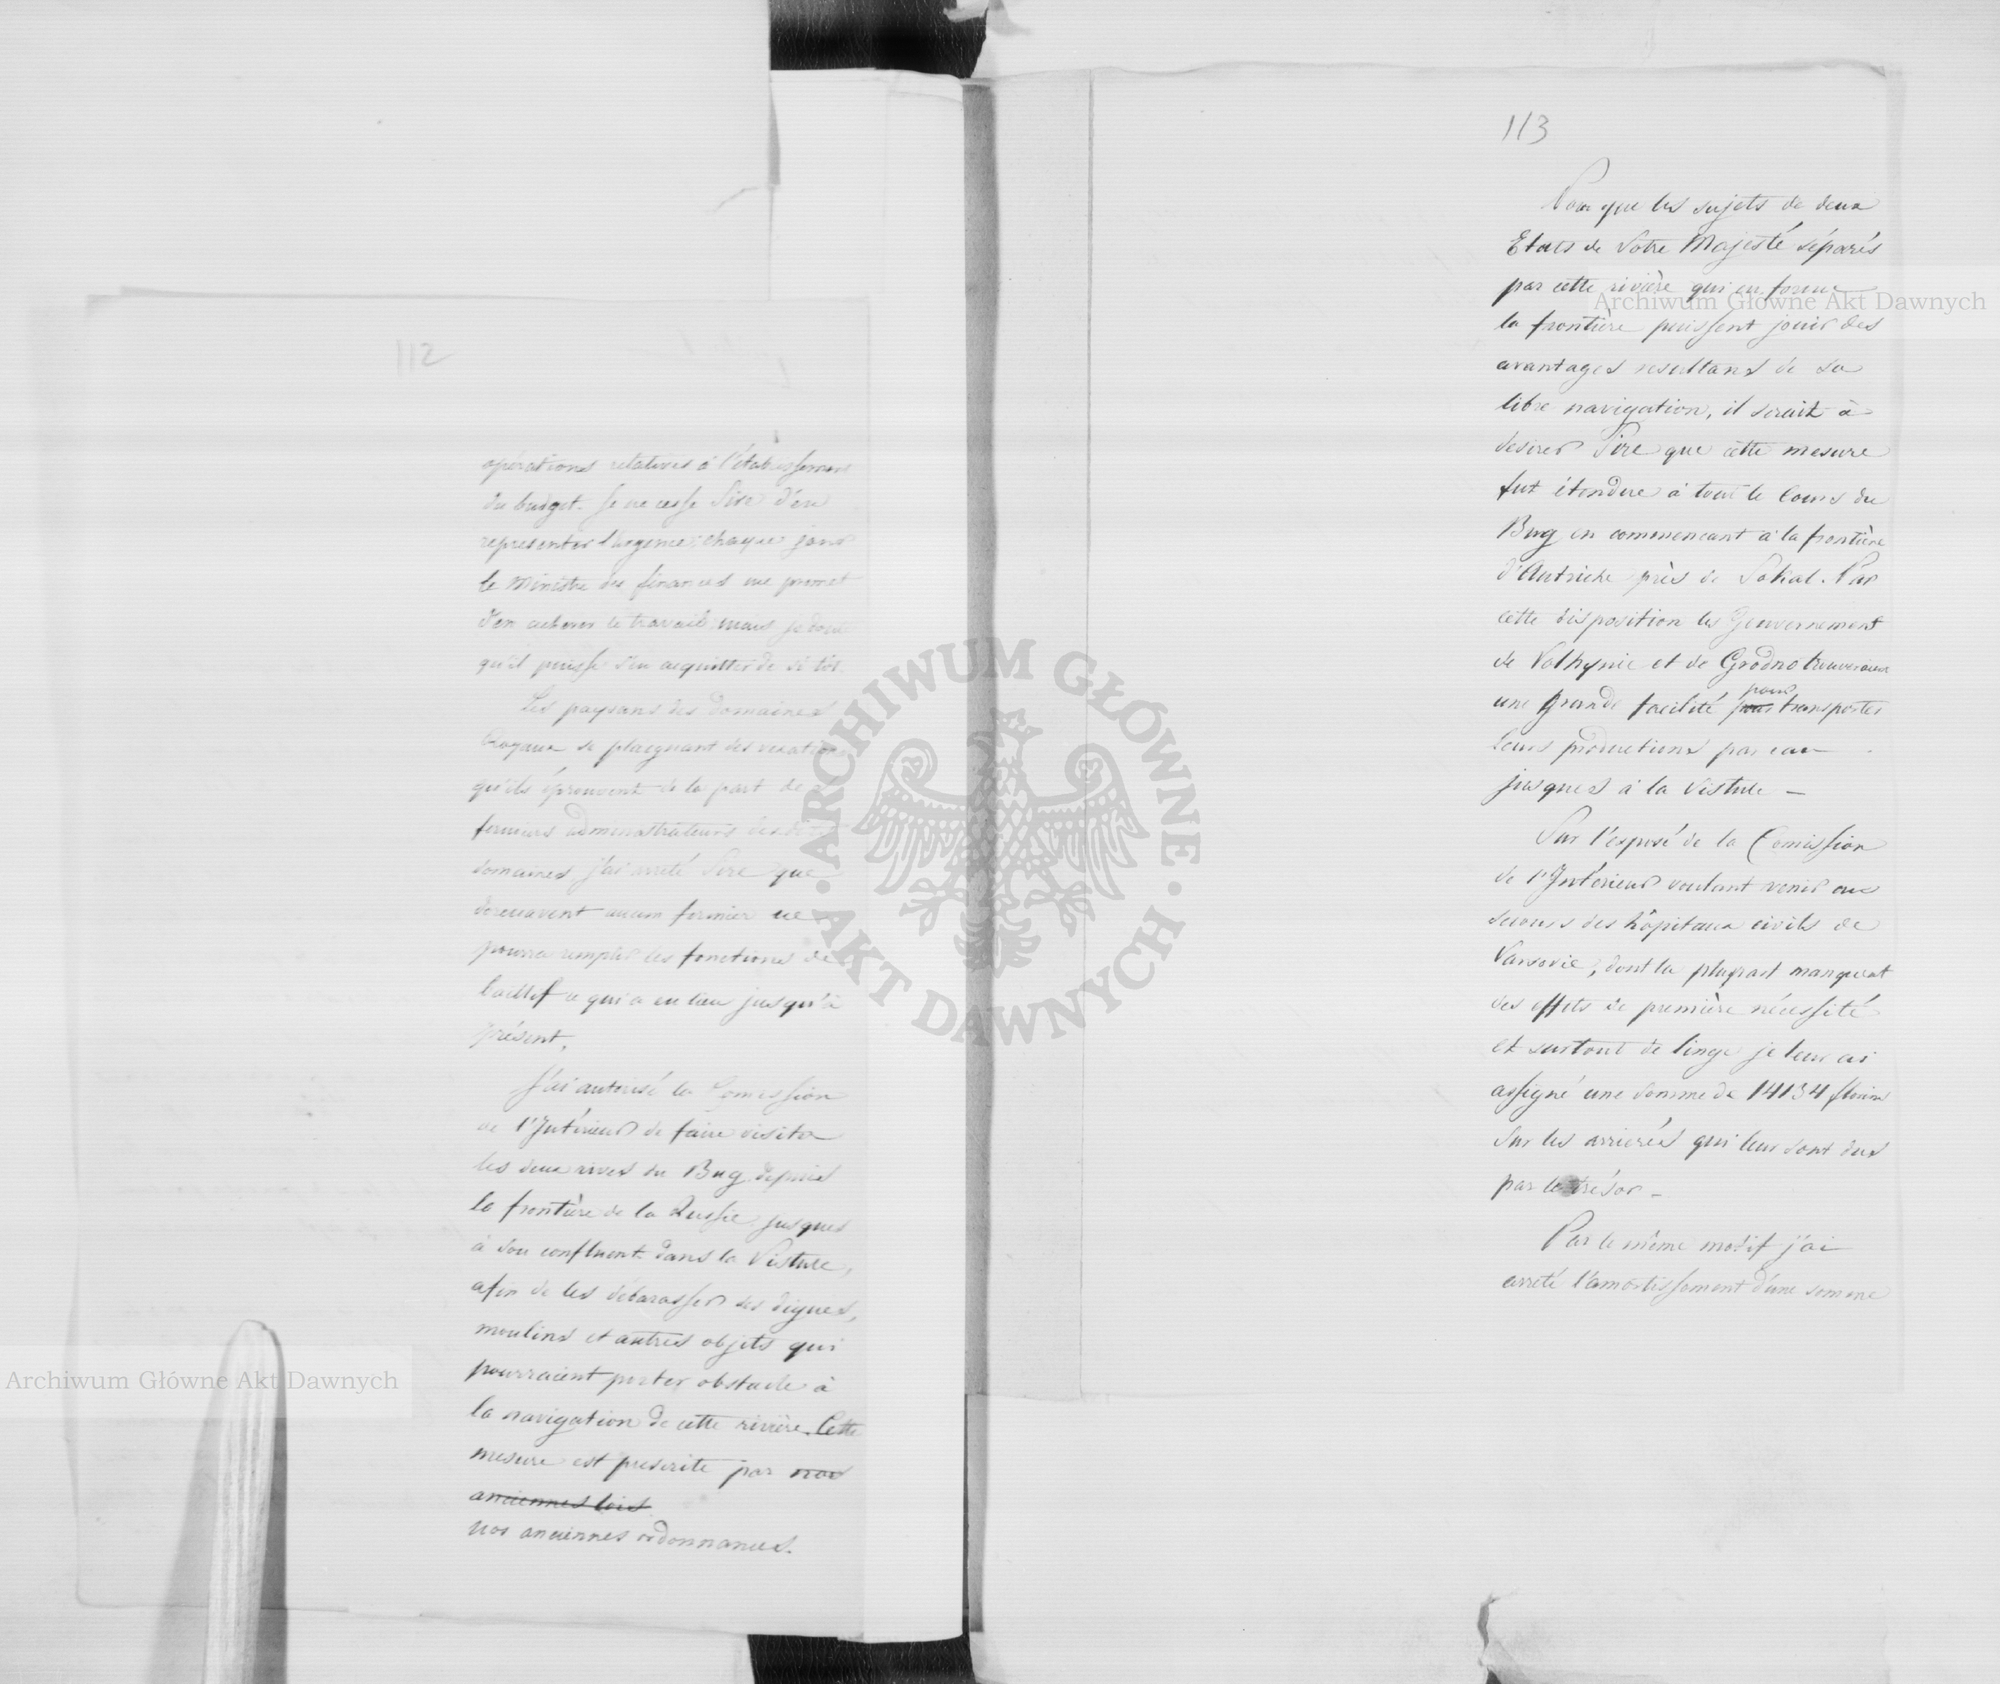 112
opérations relatives à l'établissement
du budget. Je ne cesse Sire d'en
representer l'urgence; chaque jour
le Ministre des finances me promet
d'en achever le travail; mais je doute
qu'il puisse s'en acquitter de si tôt.
Les paysans des domaines
Royaux se plaignant des vexations
qu'ils éprouvent de la part des
fermiers administrateurs desdits
domaines, j'ai arreté Sire que
dorenavent aucun fermier ne
pourra remplir les fonctions de
baillif ce qui a eu lieu jusqu'à
présent.
J'ai autorisé la Comission
de l'Intérieur de faire visiter
les deux rives du Bug depuis
la frontière de la Russie jusques
à son confluent dans la Vistule,
afin de les débarasser des digues,
moulins et autres objets qui
pourraient porter obstacle à
la navigation de cette rivière. Cette
mesure est prescrite par nos
anciennes lois
nos anciennes ordonnances.
113
Pour que les sujets de deux
Etats de Votre Majesté séparés
par cette rivière qui en forme
la frontière puissent jouir des
avantages resultans de sa
libre navigation, il serait à
desirer Sire que cette mesure
fut étendue à tout le cours du
Bug en commencant à la frontière
d'Autriche près de Sokal. Par
cette disposition les Gouvernement
de Volhynie et de Grodno trouveraient
pour
une grande facilité pour transporter
leurs productions par eau
jusques à la Vistule –
Sur l'exposé de la Comission
de l'Intérieur voulant venir au
secours des hôpitaux civils de
Varsovie, dont la plupart manquent
des effets de première nécessité
et surtout de linge je leur ai
assigné une somme de 14134 florins
sur les arrierés qui leur sont dus
par le trésor –
Par le même motif j'ai
arreté l'amortissement d'une somme
Archiwum Główne Akt Dawnych
Archiwum Główne Akt Dawnych
ARCHIWUM GŁÓWNE
AKT DAWNYCH